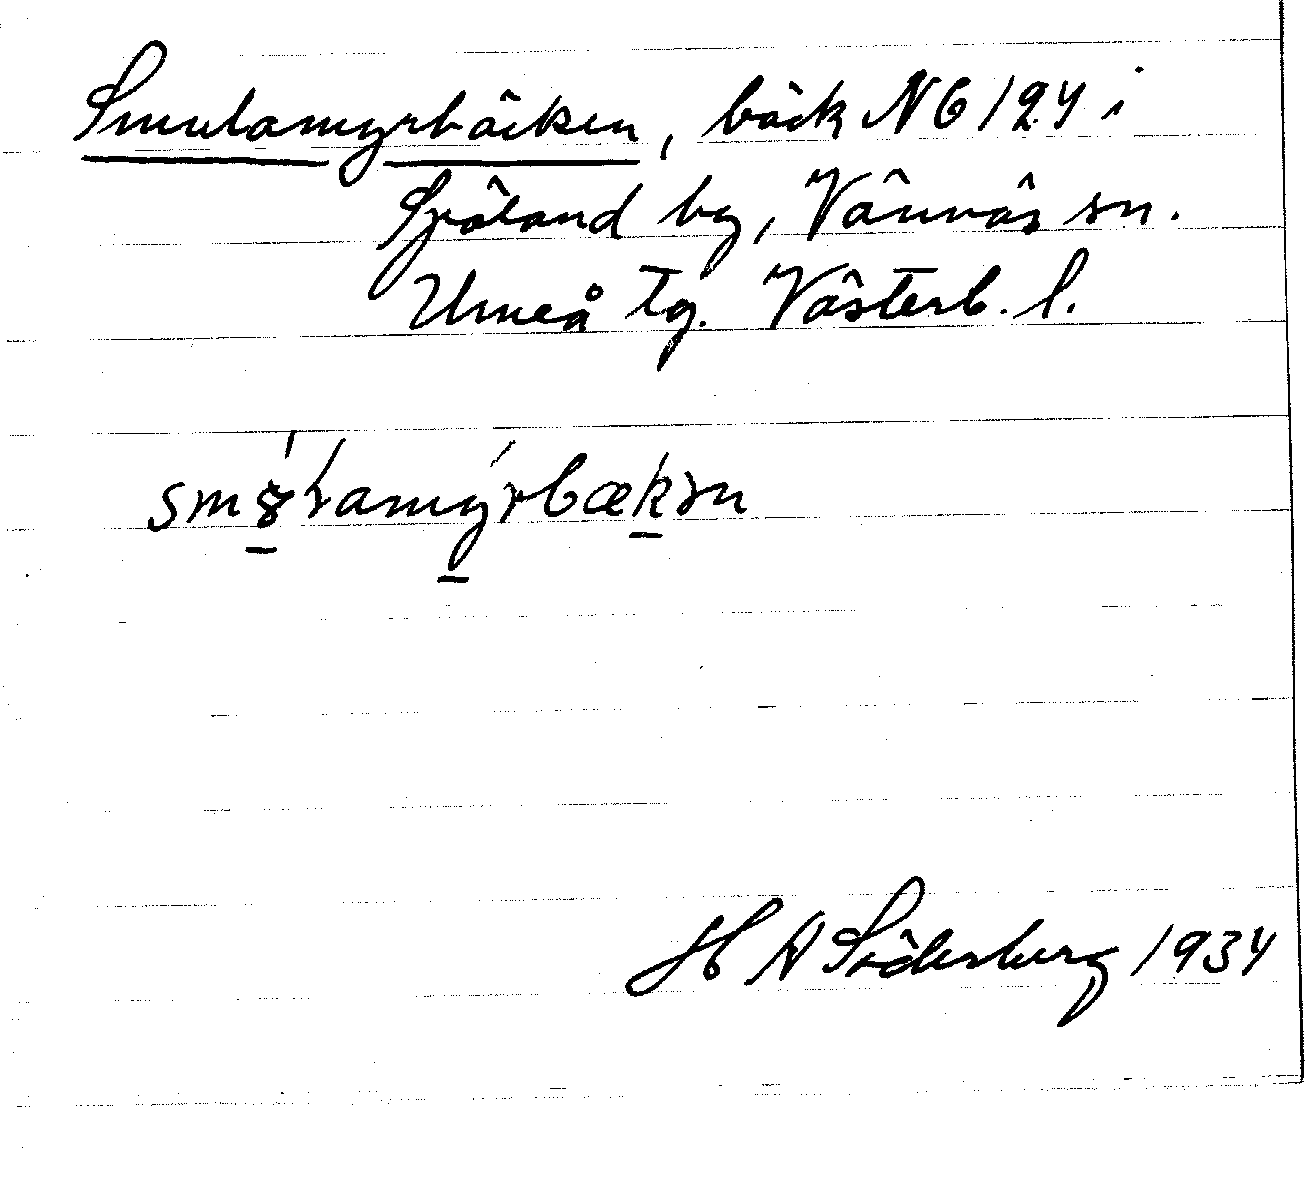 Smulamyrbäcken, bäck NG 124 i
Spöland by, Vännäs sn.
Umeå tg. Västerb. l.
H A Söderberg 1934